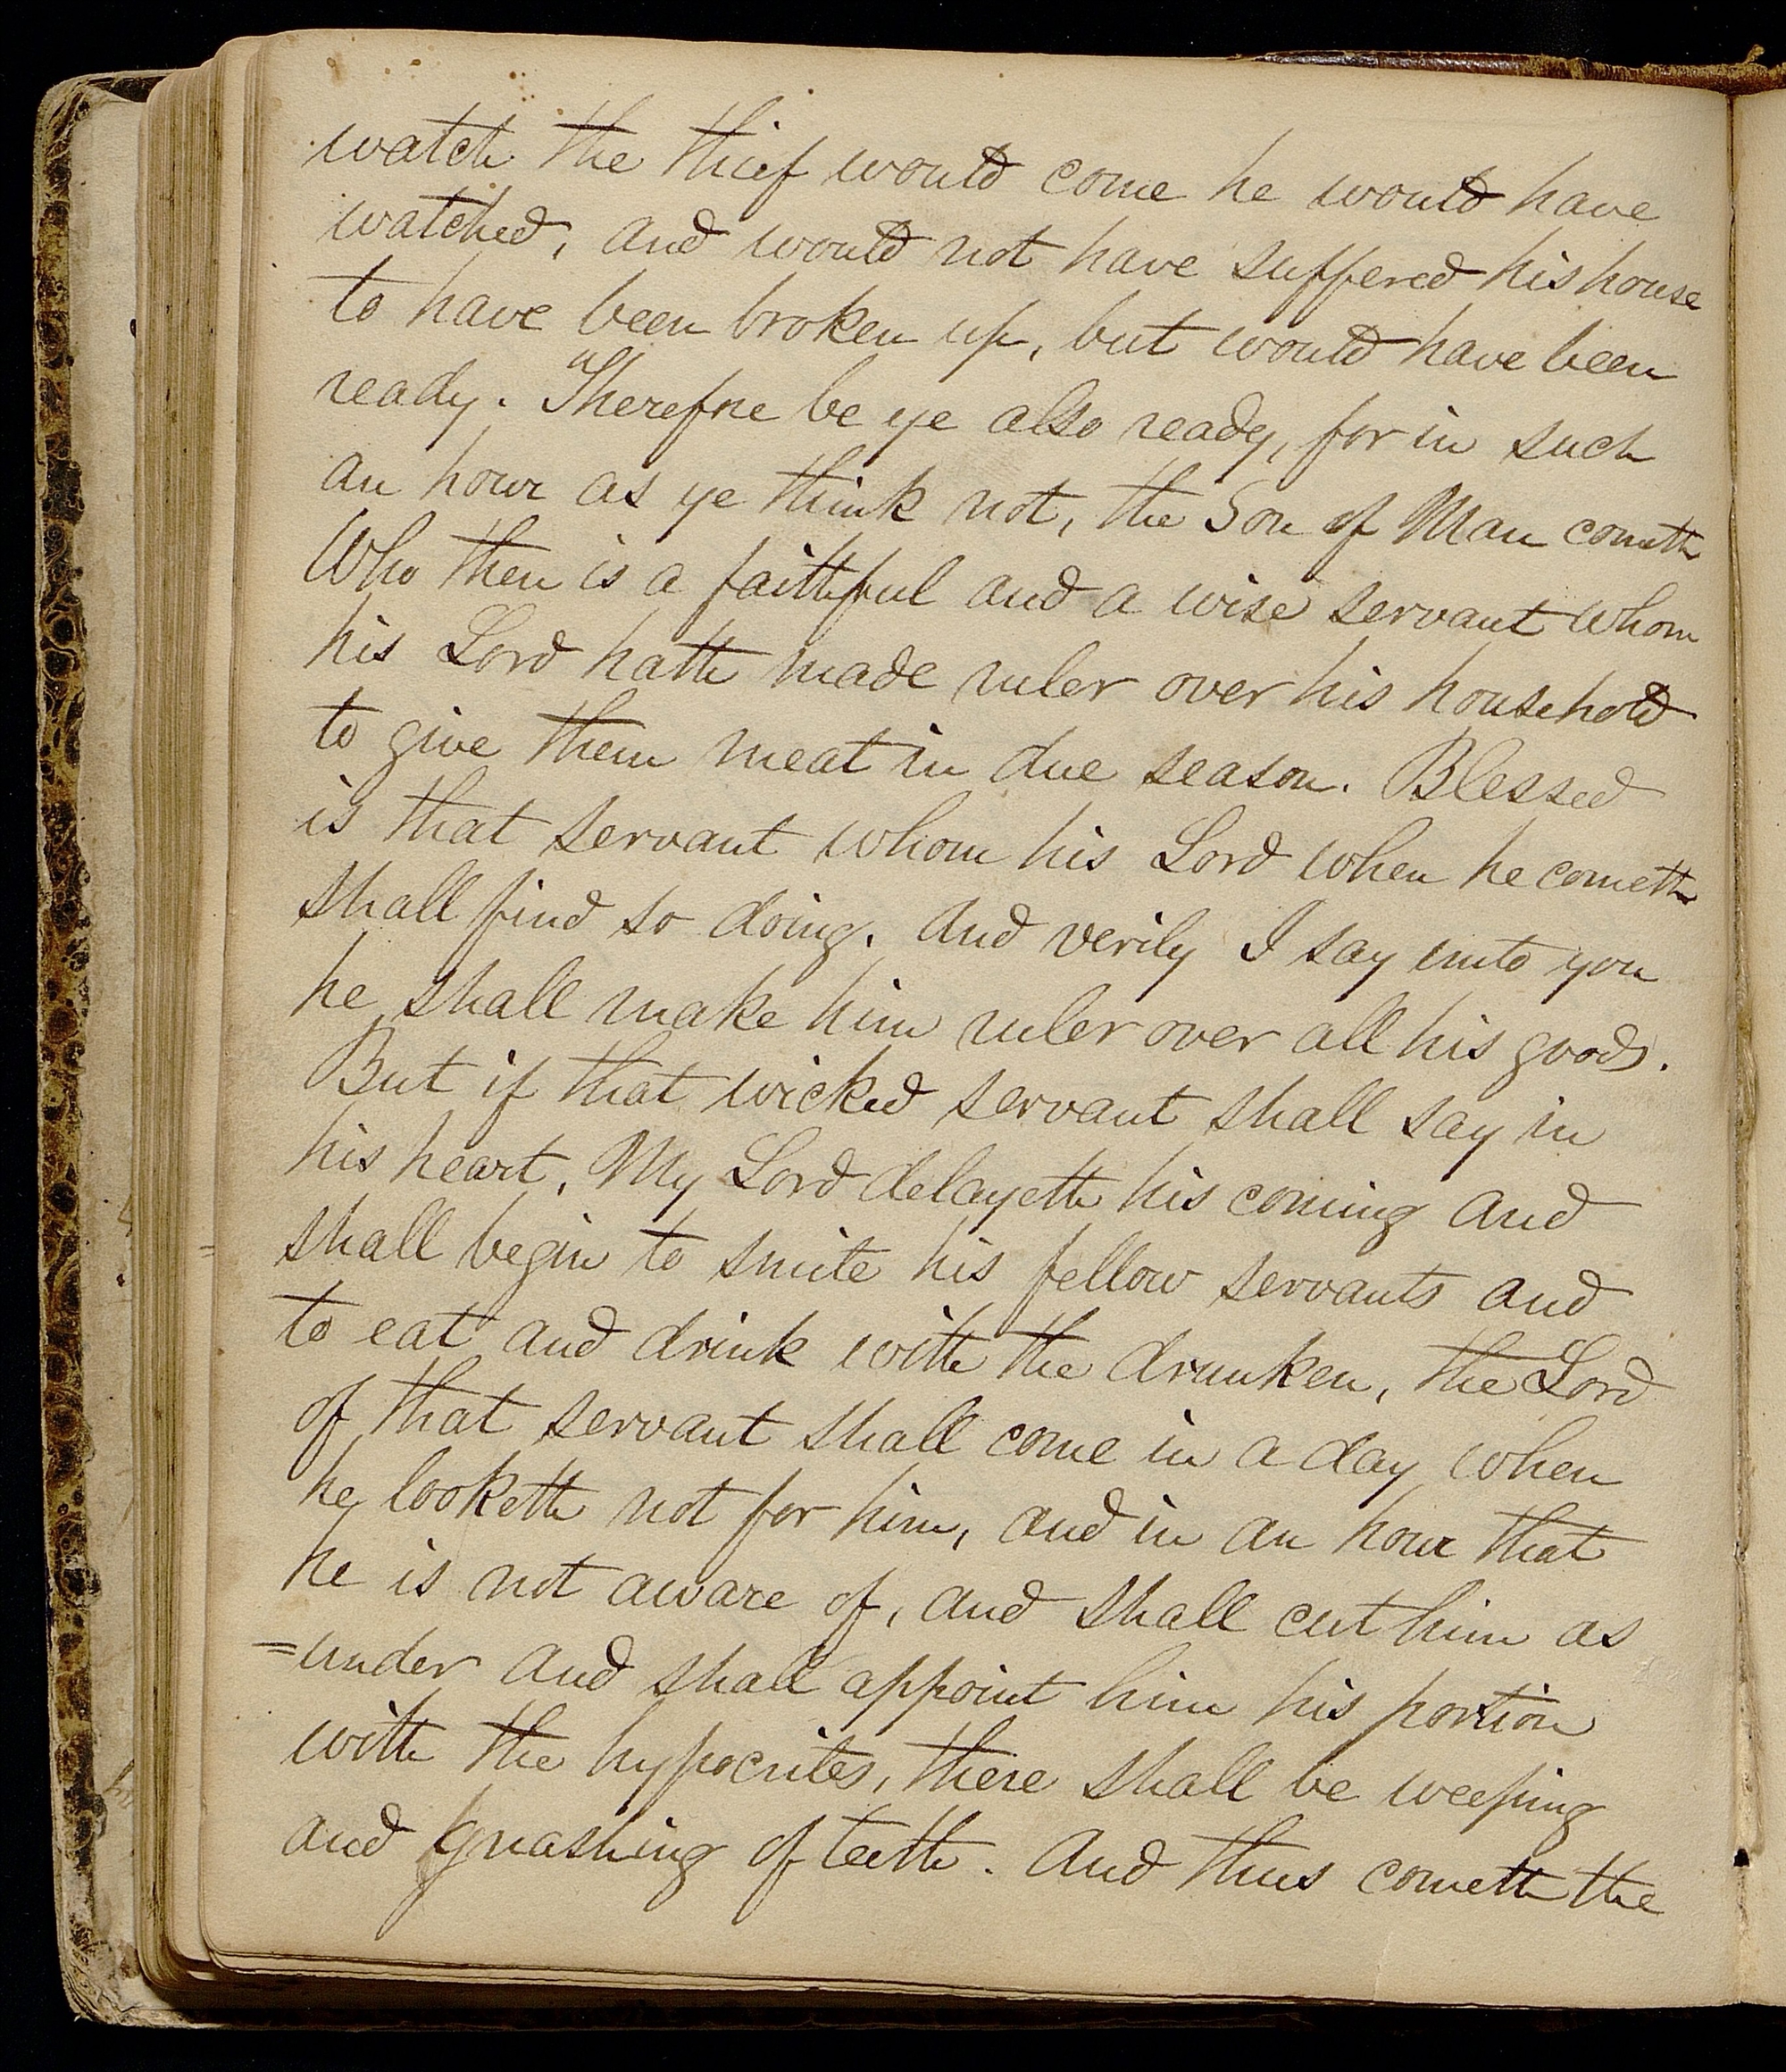 watch the thief would come he would have
watched, and would not have suffered his house
to have been broken up, but would have been
ready. Therefore be ye also ready, for in such
an hour as ye think not, the Son of Man cometh
Who then is a faithful and a wise servant whom
his Lord hath made ruler over his household
to give them meat in due season. Blessed
is that servant whom his Lord when he cometh
shall find so doing. And verily I say unto you
he shall make him ruler over all his goods.
But if that wicked servant shall say in
his heart, My Lord delayeth his coming and
shall begin to smite his fellow servants and
to eat and drink with the drunken, the Lord
of that servant shall come in a day when
he looketh not for him, and in an hour that
he is not aware of, and shall cut him as
=under and shall appoint him his portion
with the hypocrites, there shall be weeping
and gnashing of teeth. And thus cometh the